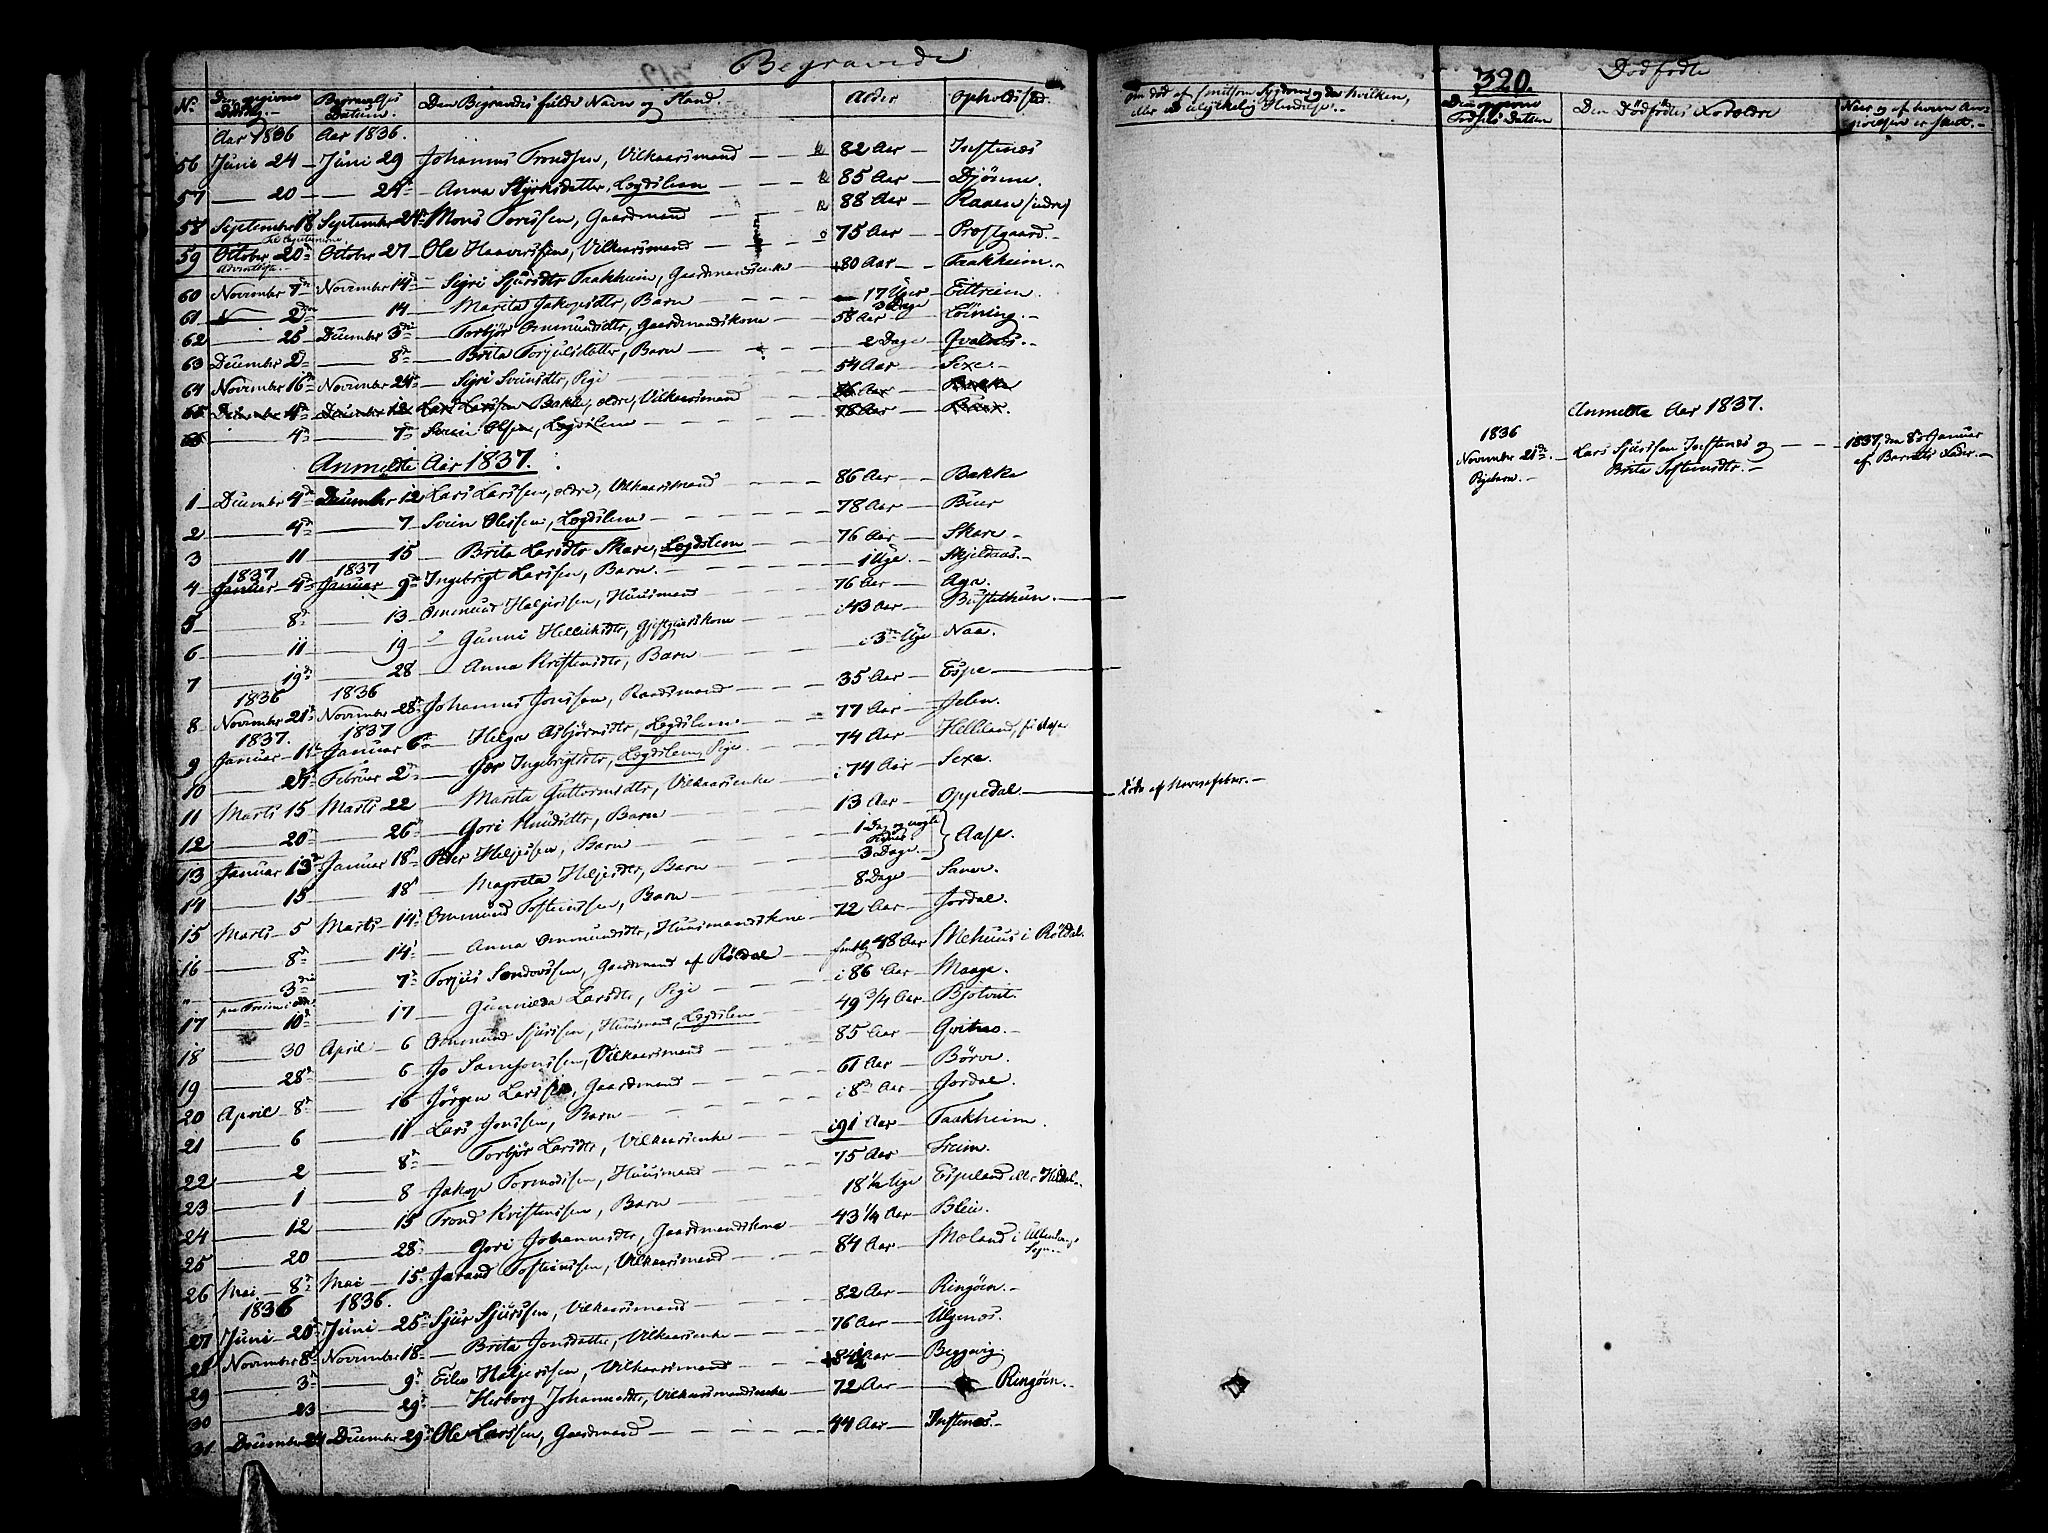 Begravede
No. Den opgivne Dødsdag. Begravelses Datum. Den Begravedes fulde Navn og Stand. Alder Opholdssted.
Aar 1836 Aar 1836.
56 Juni 24 Juni 29 Johannes Trondsen, Vilkaarsmand 82 Aar
57 20 24 Anna Styrksdatter, Lægdslem 85 Aar Djønne.
58 September 18 September 24 Mons Torissen, Gaardmand 88 Aar Raaen (indre)
59 October 20 October 27 Ole Haaverssen, Vilkaarsmand 75 Aar Prestgaard
60 November 7 November 14 Sigri Sjursdtr Taakheim, Gaardmandsenke 80 Aar Taakheim.
61 2den 14 Marita Jakopsdtr, Barn 17 Uger 3 Dage Eittreim.
62 25 December 3die Torbjør Ommundsdtr, Gaardmandskone 58 Aar Løining.
63 December 2 8 Brita Torjulsdatter, Barn 2 Dage Qvalnæs.
64 November 16 November 24 Sigri Svensdtr, Pige 54 Aar Sexe.
65 December 4 December 12 Lars Larssen Bakke, ældre, Vilkaarsmand 86 Aar Bakke
66 4 7 Svein Olsen, Lægdslem 78 Aar
Anmeldte Aar 1837.
1 December 4 December 12 Lars Larssen, ældre, Vilkaarsmand 86 Aar Bakke
2 4 7 Svein Olessen, Lægdslem 78 Aar Buer
3 11 15 Brita Larsdtr Skare, Lægdslem 76 Aar Skare
1837 1837
4 Januar 4 Januar 9 Ingebrigt Larssen, Barn. 1 Uge Skjeldnæs.
5 8 13 Ommund Heljerssen, Huusmand 76 Aar Aga.
6 11 19 Gunni Helliksdtr, i 43 Aar Bustethun.
7 19 28 Anna Kristensdtr, Barn i 3die Uge Naa.
1836 1836
8 November 21 November 28 Johannes Jonssen, 35 Aar Espe
1837. 1837
9 Januar 1 Januar 6 Helga Asbjørnsdtr, Lægdslem 77 Aar Jelen.
10 24 Februar 2 Ingebrigtsdtr, Lægdslem, Pige. 74 Aar Helleland
11 Marts 15 Marts 22 Marita Guttormsdtr, Vilkaarsenke i 74 Aar Sexe
12 20 26 Gori Knudsdtr, Barn 13 Aar Oppedal.
13 Januar 13 Januar 18 Peder Heljessen, Barn 1 Dag og nogle Timer Aase.
14 15 18 Magreta Heljesdtr, Barn 3 Dage
15 Marts 5 Marts 14 Ommund Tosteinssen, Barn 8 Dage
16 8 14 Anna Ommundsdtr, Huusmandskone 72 Aar Jordal.
" 3die 7 Torjus Sondovssen, Gaardmand af Røldal 48 Aar Mehuus i Røldal.
17 10 17 Gunnilda Larsdtr, Pige i 86 Aar Maage.
18 30 April 6 Ommund Sjurssen, Huusmand, Lægdslem 49 3/4 Aar Bjotveit.
19 28 6 Jo Samsonssen, Vilkaarsmand 85 Aar
20 April 8 16 Jørgen Larssen, Gaardmand 61 Aar Børve.
21 6 11 Lars Jonssen, Barn i 8 Aar Jordal.
22 2 8 Torbjør Larsdtr, Vilkaarsenke i 91 Aar Taakheim.
23 1 8 Jakop Tormodssen, Huusmand 75 Aar Freim.
24 12 15 Trond Kristenssen, Barn 18 1/2 Uge Espeland eller Hildal.
25 20 28 Gori Johannesdtr, Gaardmandskone 43 1/4 Aar Bleie.
26 Mai 8 Mai 15 Jarand Tosteinssen, Vilkaarsmand 84 Aar Moland i Ullensvangs Sogn.
1836 1836.
27 Juni 20 Juni 25 Sjur Sjurssen, Vilkaarsmand 82 Aar Ringøen.
28 November 8 November 18 Brita Jonsdatter, Vilkaarsenke 76 Aar Ulgenæs.
29 3 9 Eilev Heljerssen, Vilkaarsmand 84 1/2 Aar
30 23 29 Herborg Johannesdtr, Vilkaarsmandsenke 72 Aar Ringøen.
31 December 24 December 29 Ole Larssen, Gaardmand 44 Aar
320.
Dødfødte
om død af smitsom Sygdom og da hvilken, eller ulykkelig Hændelse.
Den opgivne Fødsels Datum Den Dødfødtes Forældre Naar og af hvem Anmeldelsen er skeet.
Anmeldte Aar 1837.
1836
November 21de. Lars Sjurssen og 1837, den 8de Januar
Pigebarn. Brita Tosteinsdtr. af Barnets Fader.
Døde af Nervefeber.